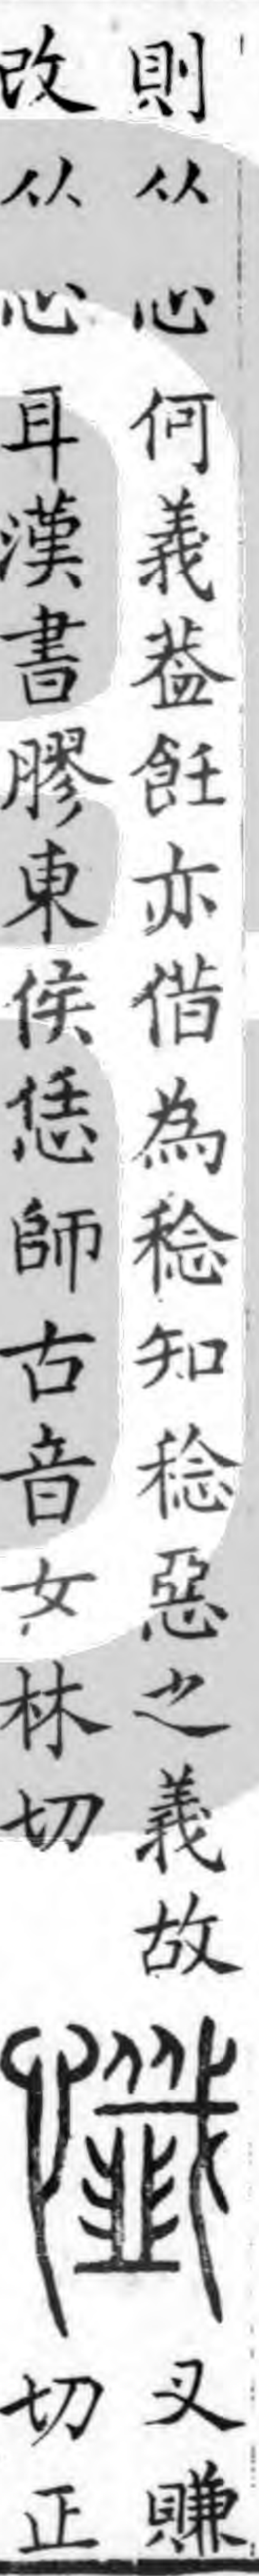 則从心何義葢飪亦偕為稔知稔惡之義故
改从心耳漢書膠東侯恁師古音女林切
懺
叉賺
切正